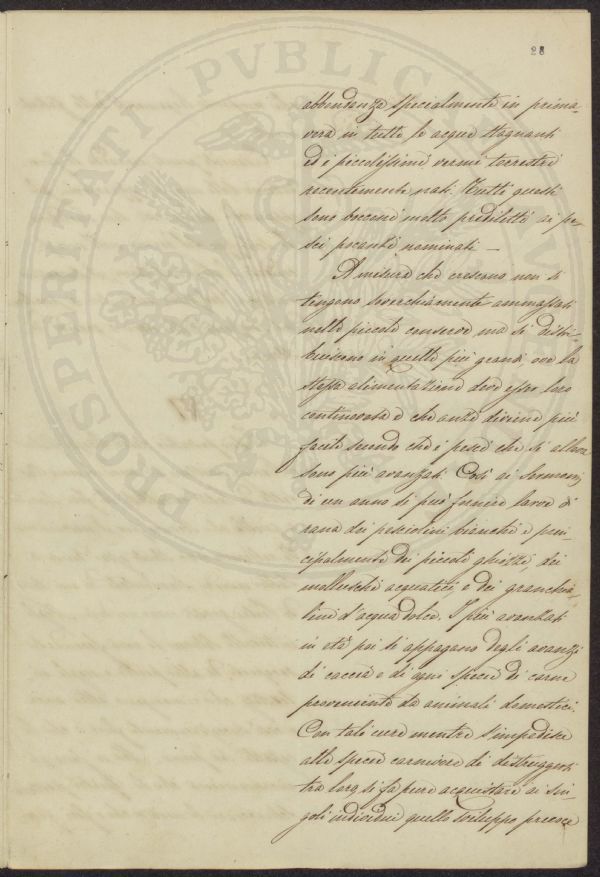 28
abbondanza specialmente in prima-
vera in tutte le acque stagnanti
ed i piccolissimi vermi terrestri
recentemente nati. Tutti questi
sono bocconi molto prediletti ai pe-
sci pocanti nominati —
A misura che crescono non si
tengono soverchiamente ammassati
nelle piccole conserve, ma si distri-
buiscono in quelle più grandi, ove la
stessa alimentazione deve esser loro
continovata e che anzi diviene più
facile secondo che i pesci che si allevano
sono più avanzati. Così ai sermoni
di un anno si può fornire larve di
rana dei pesciolini bianchi e prin-
cipalmente dei piccoli ghiozzi, dei
molluschi acquatici, e dei granchio-
lini d'acqua dolce. I più avanzati
in età poi si appagano degli avanzi
di caccia e di ogni specie di carne
proveniente da animali domestici.
Con tali cure mentre s'impedisce
alle specie carnivore di distruggersi
tra loro, si fa pure acquistare ai sin-
goli individui quello sviluppo precoce
PROSPERITATI PVBLICAE